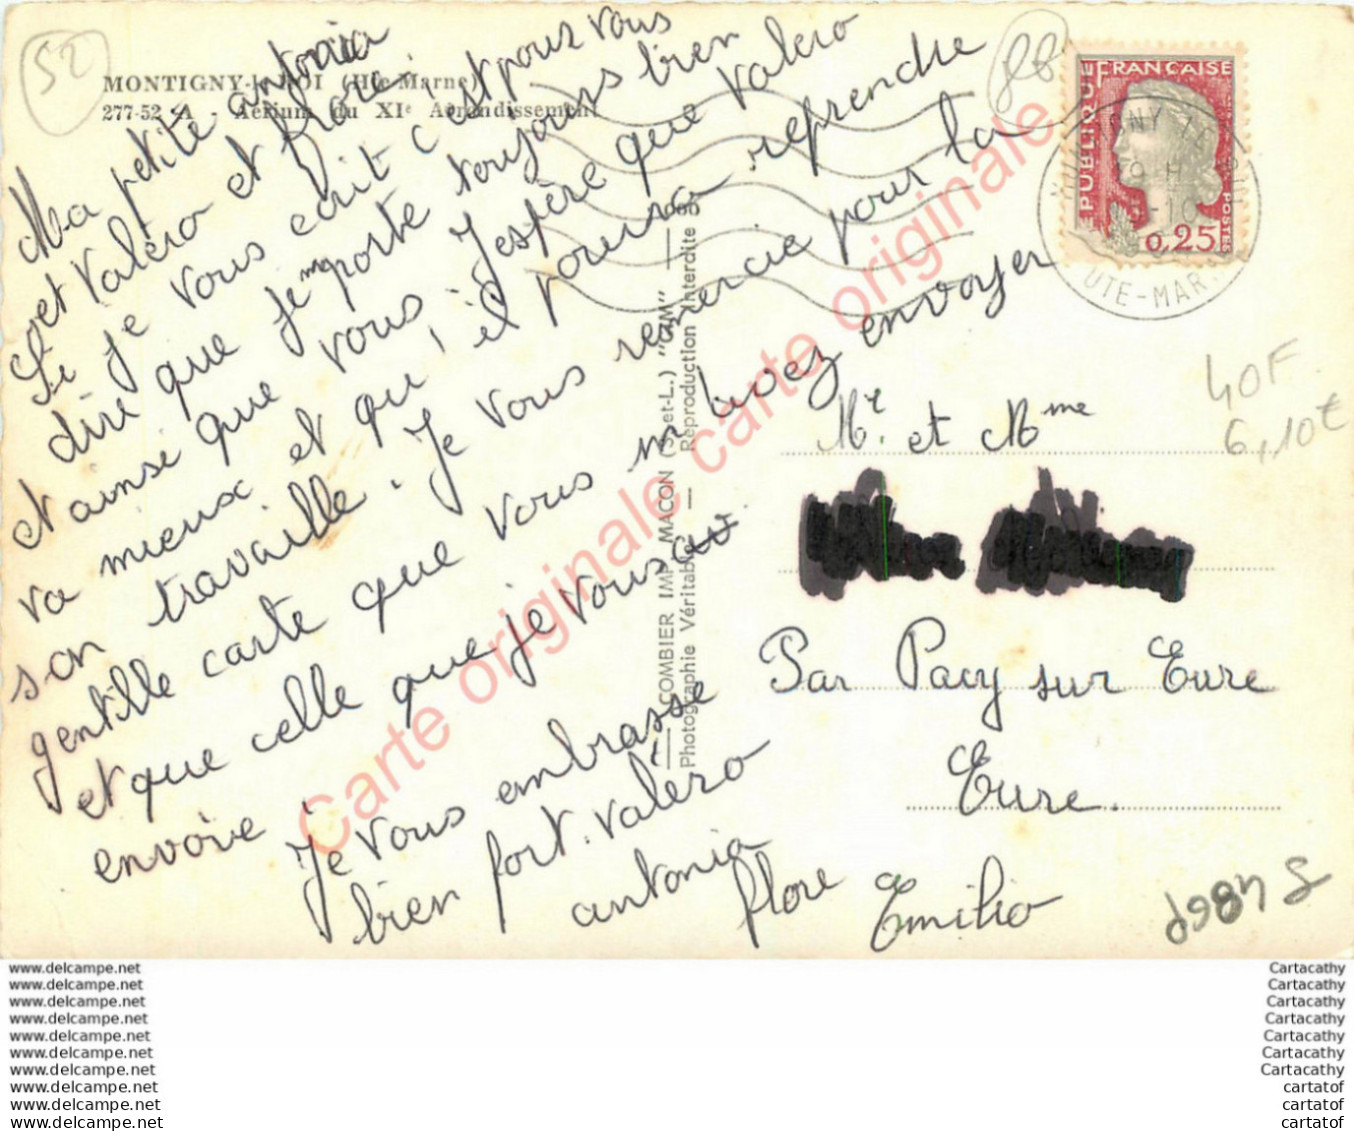 52
MONTIGNY-le-ROI (Hte-Marne)
277-52 A - Aérium du XIe Arrondissement
Ma petite antonia
et Valéro et flore
Si je vous écrit c'est pour vous
dire que je me porte toujours bien
et ainse que vous, J'espère que Valero
va mieux et qu'il pourra reprendre
son travaille. Je vous remercie pour la
gentille carte que vous m'avez envoyer
et que celle que je vous
envoie.
Je vous embrasse
bien fort. Valero
antonia
flore
Emilio
COMBIER IMP. MACON (S.-et-L.) "CIM"
Photographie Véritable — Reproduction Interdite
RÉPUBLIQUE FRANÇAISE
0,25
POSTES
19 H
UTE-MAR
40F
6,10€
Mr et Mme
Par Pacy sur Eure
Eure.
Carte originale carte originale
www.delcampe.net
www.delcampe.net
www.delcampe.net
www.delcampe.net
www.delcampe.net
www.delcampe.net
www.delcampe.net
www.delcampe.net
www.delcampe.net
www.delcampe.net
Cartacathy
Cartacathy
Cartacathy
Cartacathy
Cartacathy
Cartacathy
Cartacathy
cartatof
cartatof
cartatof